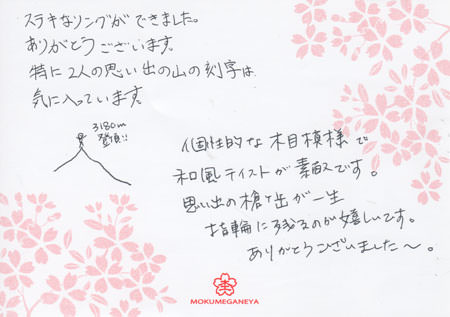 ステキなリングができました。
ありがとうございます。
特に2人の思い出の山の刻字は
気に入っています。
3180m
登頂!!
個性的な木目模様で
和風テイストが素敵です。
思い出の槍ヶ岳が一生
指輪に残るのが嬉しいです。
ありがとうございました〜。
MOKUMEGANEYA